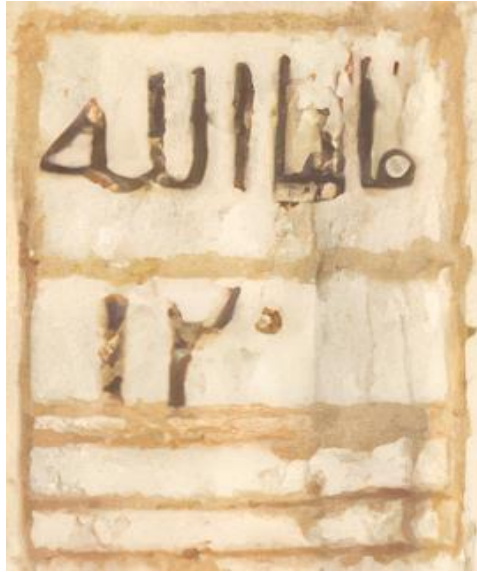 ماشاالله
١٢٠